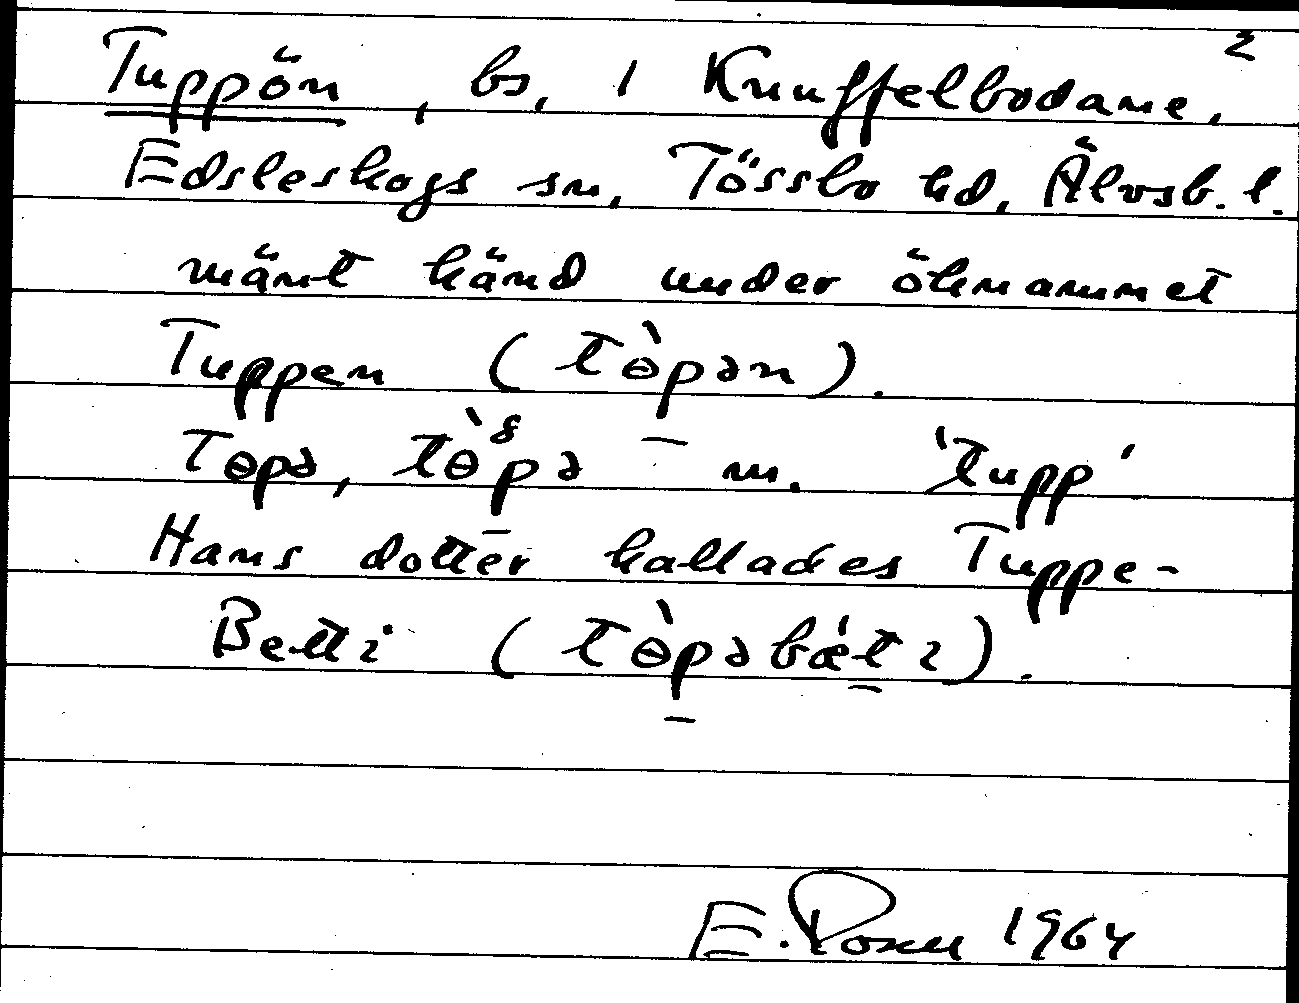 2
Tuppön, bs, 1 Knuffelbodane,
Edsleskogs sn, Tössbo hd, Älvsb. l.
mänt känd under öknamnet
Tuppen (tɵ̀pən).
Tɵpə, tɵ̀pə – m. 'tupp'
Hans dotter kallades Tuppe-
Betti (tɵ̀pəbǽtɩ).
E. 1964